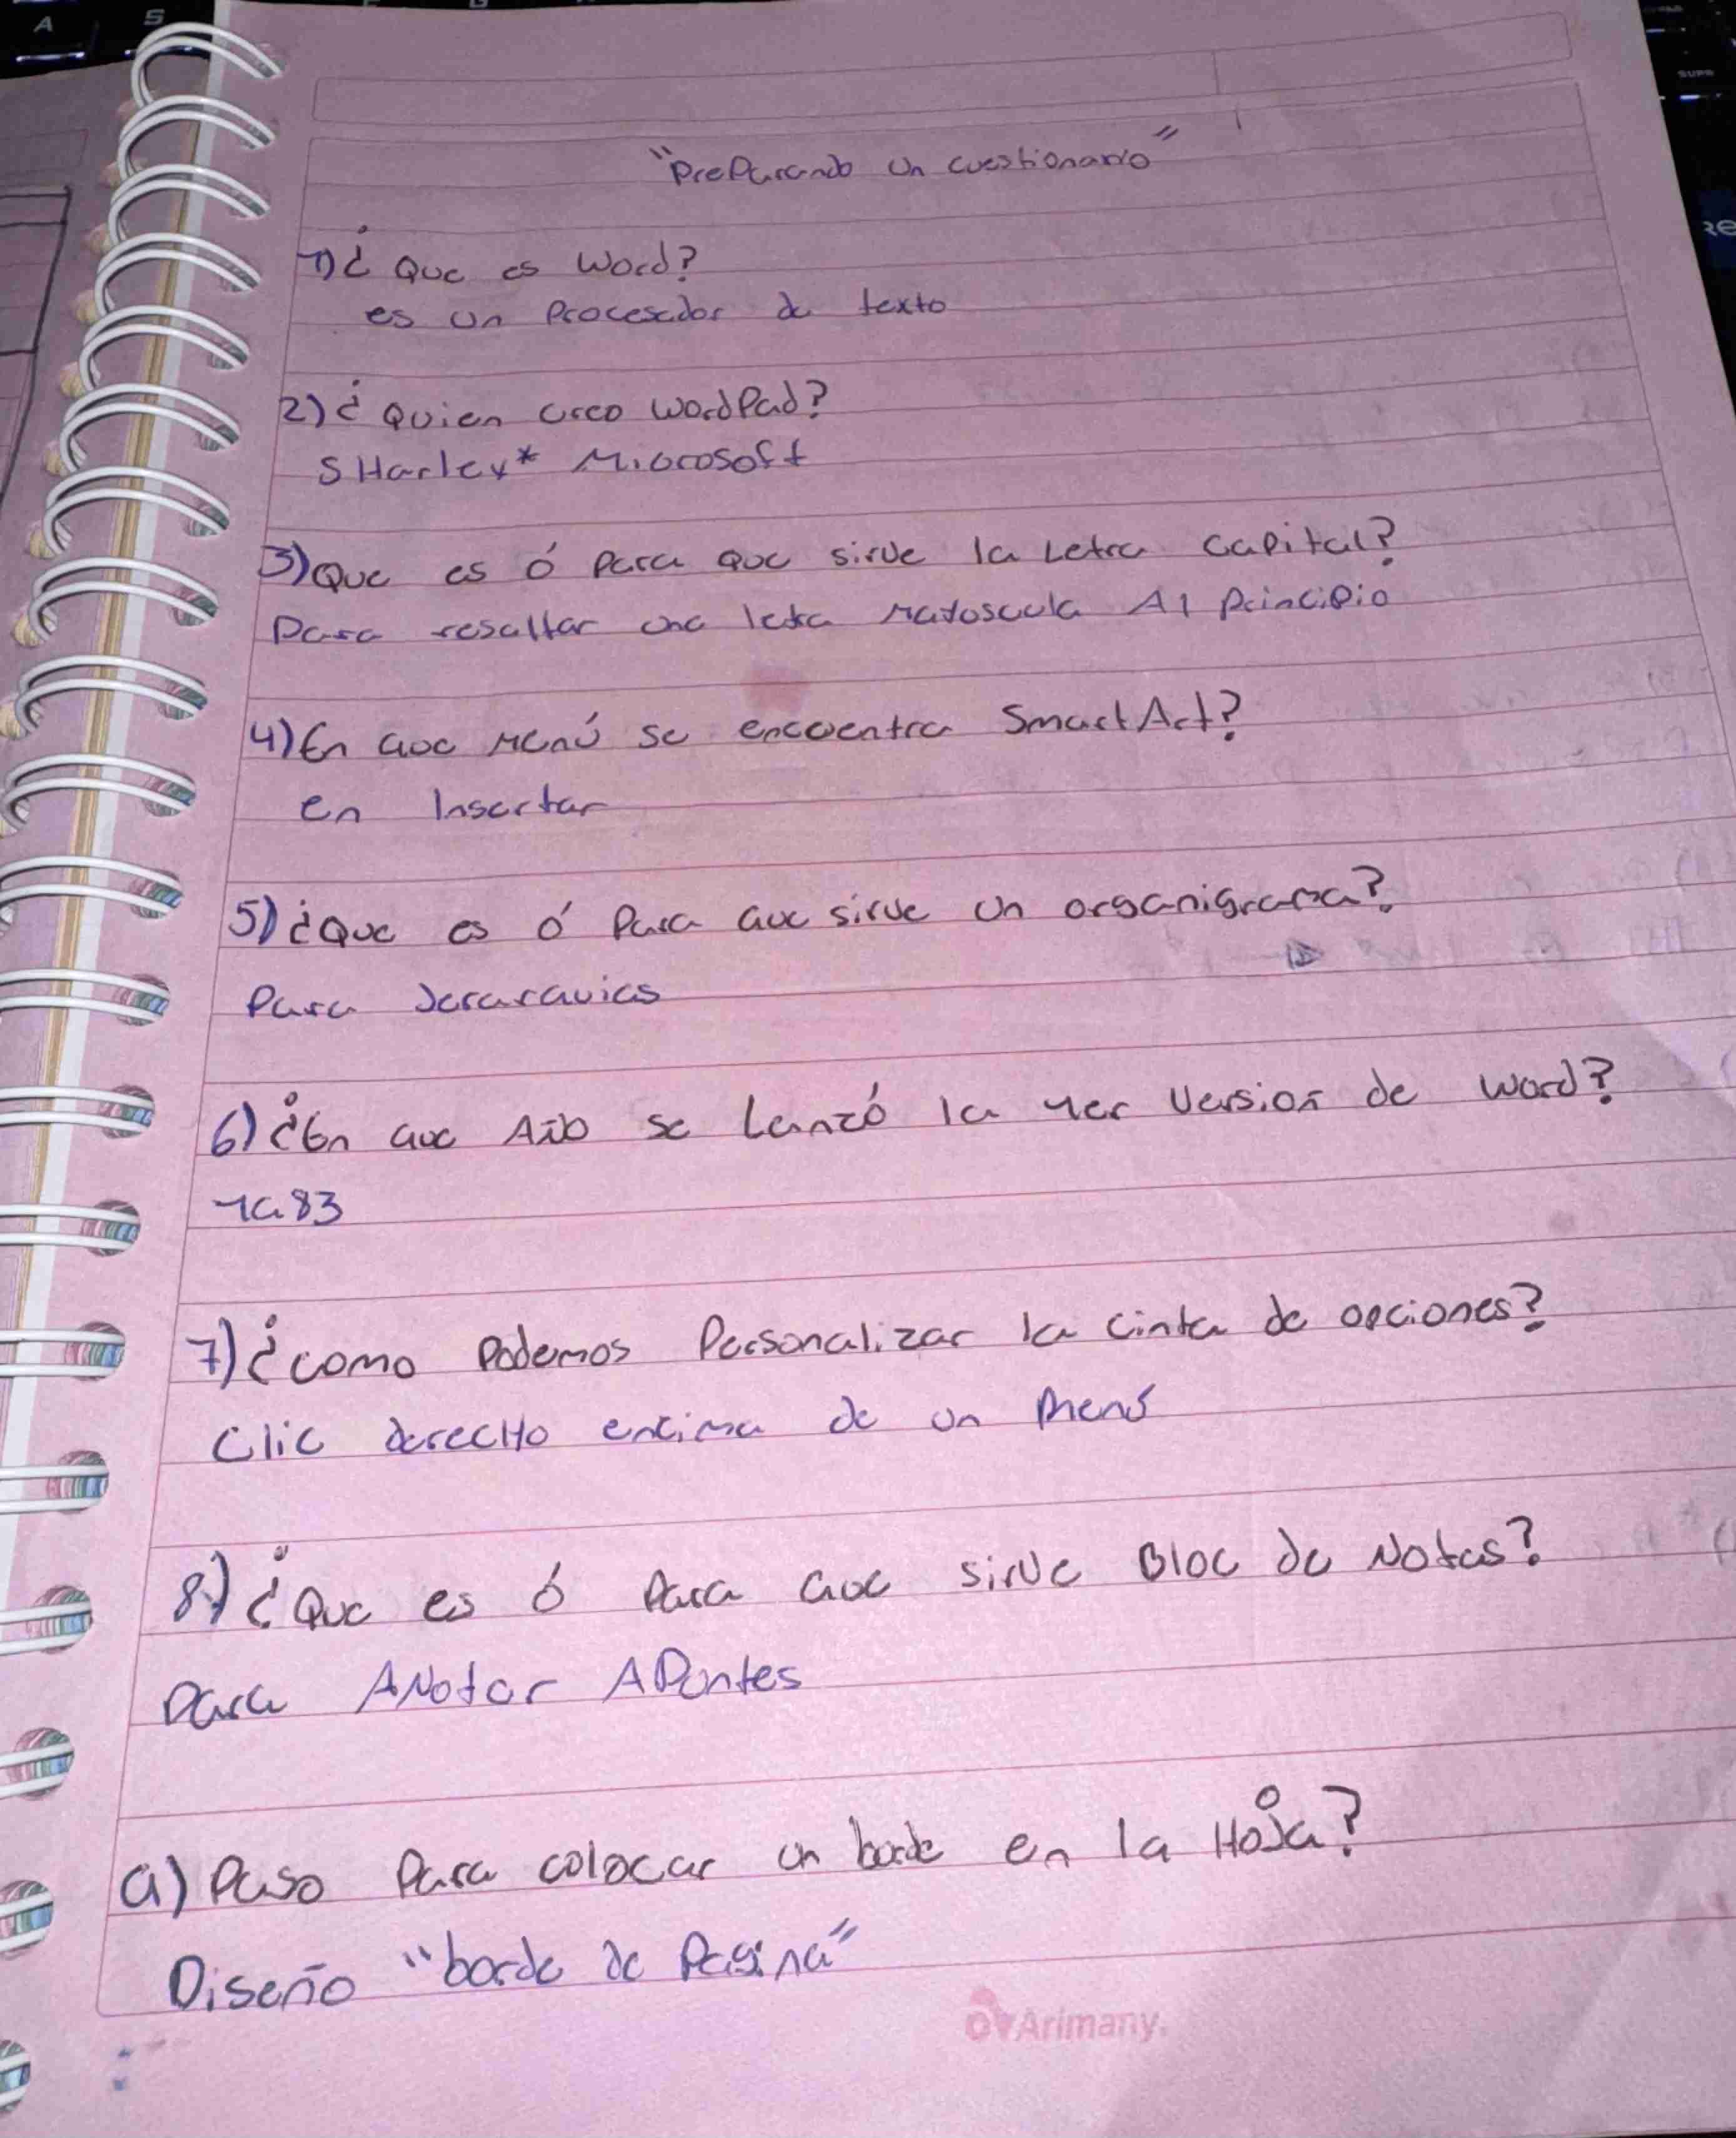 "Preparando un cuestionario"
1) ¿Que es Word?
es un Procesador de texto
2) ¿Quien creo WordPad?
SHarley* Microsoft
3) Que es ó Para que sirve la Letra capital?
Para resaltar una letra Mayoscula Al Principio
4) En que Menú se encuentra SmartArt?
en Insertar
5) ¿Que es ó Para que sirve un organigrama?
Para Jerarquias
6) ¿En que Año se Lanzó la 1er Version de Word?
1983
7) ¿como Podemos Personalizar la cinta de opciones?
Clic derecHo encima de un Menú
8) ¿Que es ó Para que sirve Bloc de Notas?
Para ANotar APuntes
9) Paso Para colocar un borde en la HoJa?
Diseño "borde de Pagina"
Arimany.
A
S
SUPR